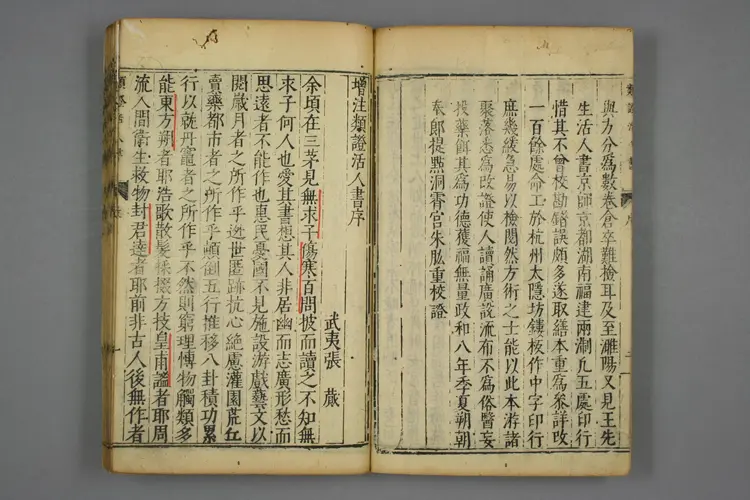 與方分爲數卷倉卒難檢耳及至濉陽又見王先
生活人書京師京都湖南福建兩淛凡五處印行
惜其不曾校勘錯誤頗多遂取繕本重爲參詳改
一百餘處命工於杭州太隱坊鏤板作中字印行
庶幾緩急易以檢閱然方術之士能以此本游諸
聚落悉爲改證使人讀誦廣說流布不爲俗醫妄
投藥餌其爲功德獲福無量政和八年季夏朔朝
奉郎提點洞霄宮朱肱重校證
增注類證活人書序
武夷張蕆
余頃在三茅見無求子傷寒百問披而讀之不知無
求子何人也愛其書想其人非居幽而志廣形愁而
思遠者不能作也惠民憂國不見施設游戲藝文以
閱歲月者之所作乎逃世匿跡抗心絶慮灌園荒丘
賣藥都市者之所作乎顚倒五行推移八卦積功累
行以就丹竈者之所作乎不然則窮理博物觸類多
能東方朔者耶浩歌散髮採掇方技皇甫謐者耶周
流人間衛生救物封君達者耶前非古人後無作者